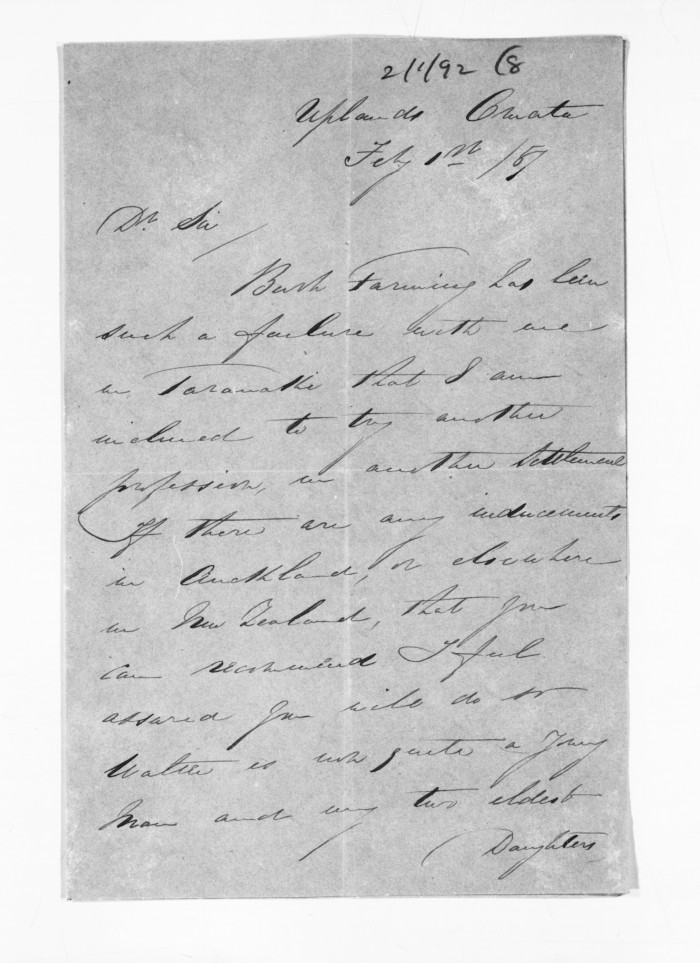 2/1/92 (8
Uplands Omata
Feby 1st /57
Dr Sir
Bush Farming has been
such a failure with me
in Taranaki that I am
inclined to try another
profession, in another Settlement
If there are any inducements
in Auckland, or elsewhere
in New Zealand, that you
can recommend I feel
assured you will do so
Walter is now quite a young
Man and my two eldest
Daughters